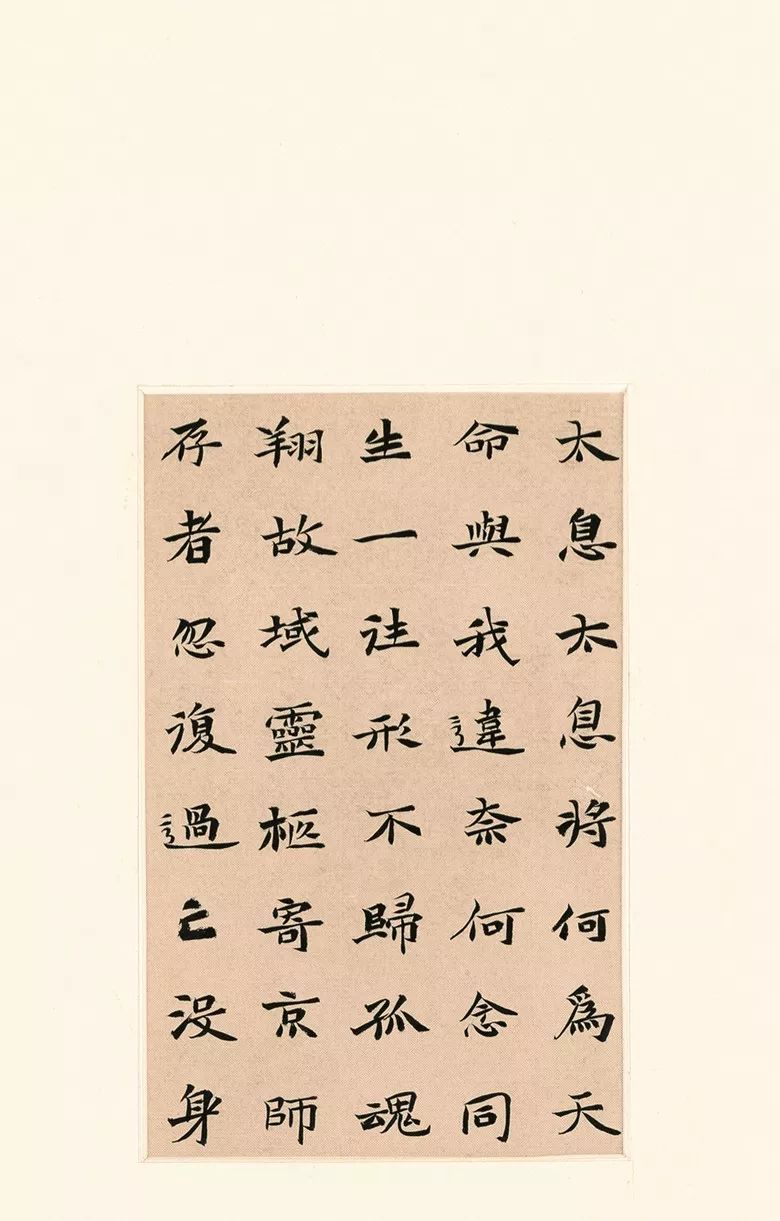 太息太息將何為天
命與我違奈何念同
生一往形不歸孤魂
翔故域靈柩寄京師
存者忽復過亡沒身